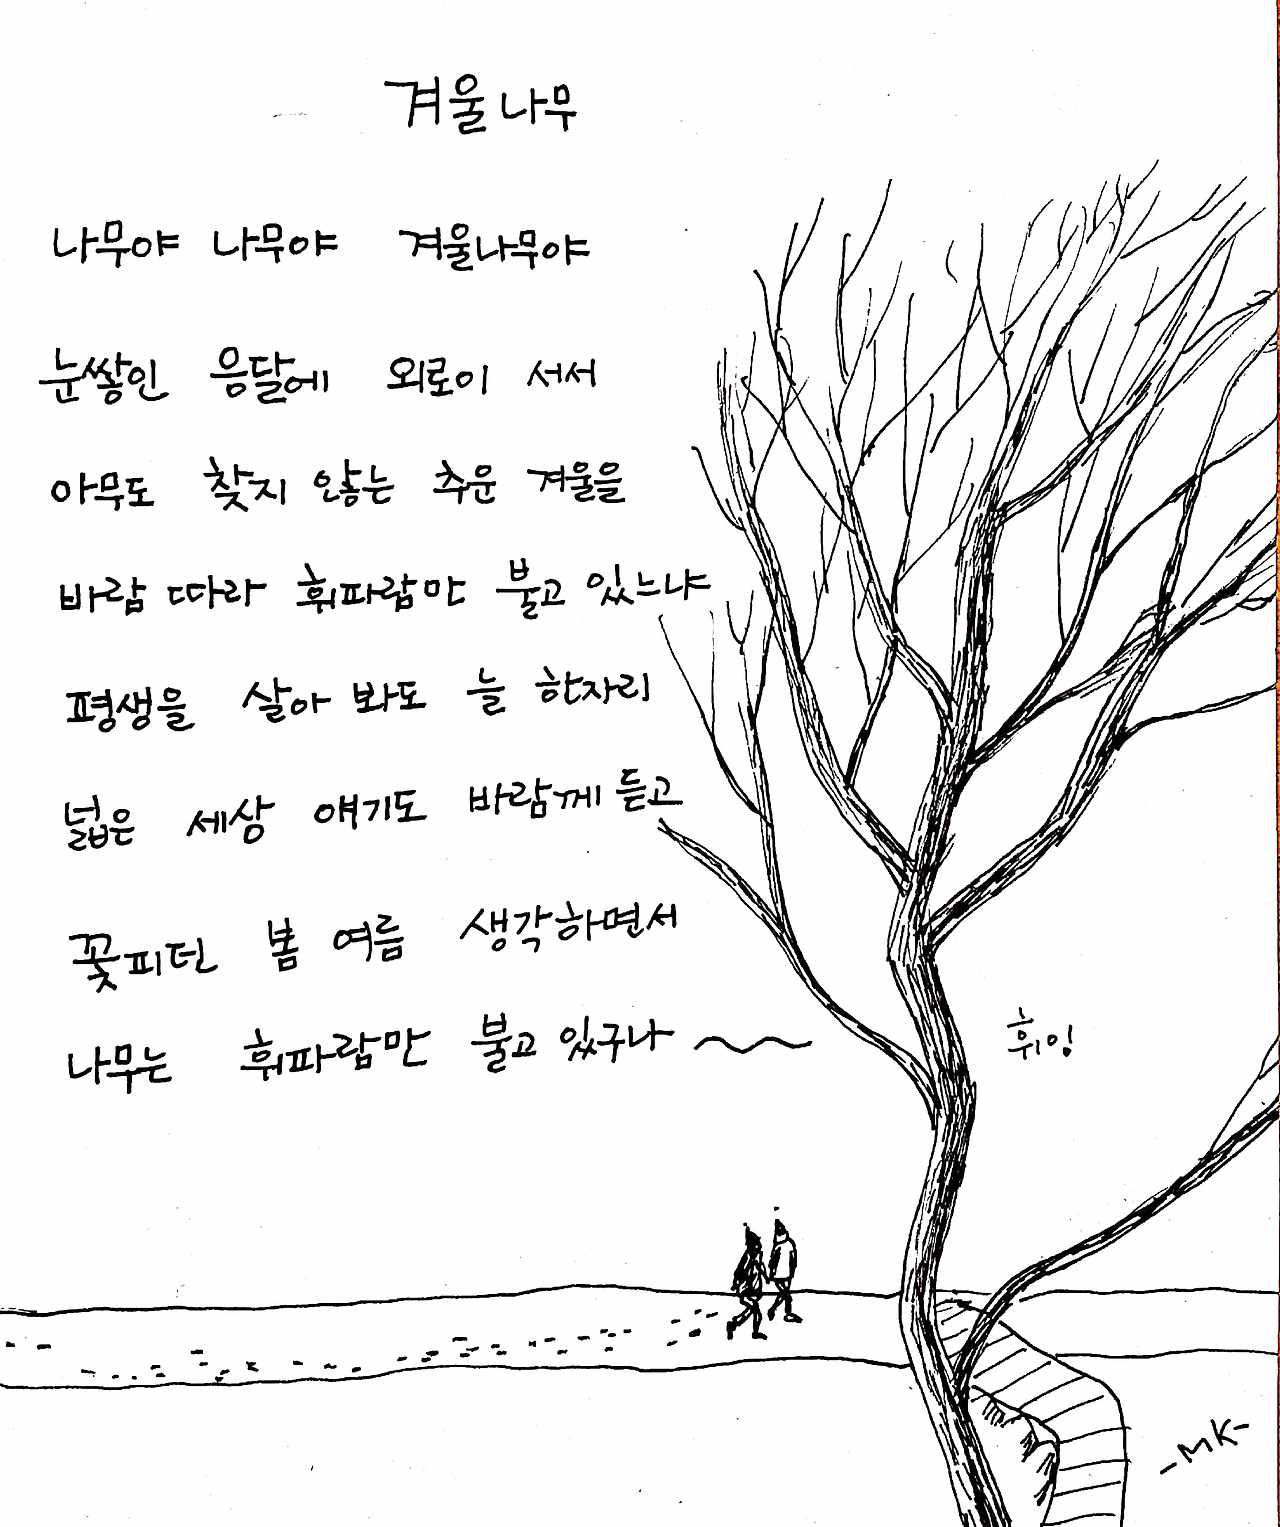 겨울나무
나무야 나무야 겨울나무야
눈쌓인 응달에 외로이 서서
아무도 찾지 않는 추운 겨울을
바람 따라 휘파람만 불고 있느냐
평생을 살아 봐도 늘 한자리
넓은 세상 얘기도 바람께 듣고
꽃피던 봄 여름 생각하면서
나무는 휘파람만 불고 있구나
휘잉
-MK-